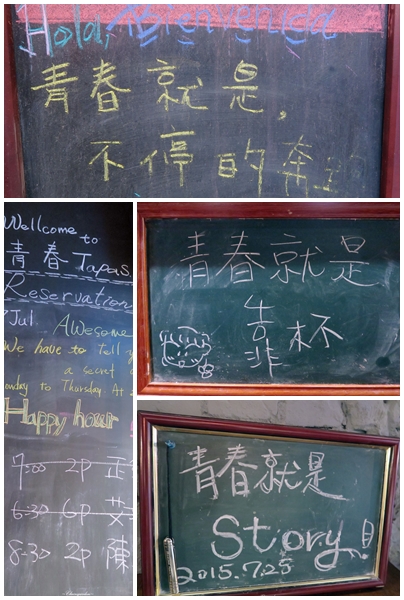 Hola, Bienvenida
青春就是,
不停的奔
Wellcome to
青春 Tapas
Reservation
7 Jul
AWesome
We have to tell y
a secret
onday to Thursday. At
Happy hour
7:00 2p
6:30 6p
8:30 2p 陳
青春就是
靠杯
青春就是
Story!
2015.7.25